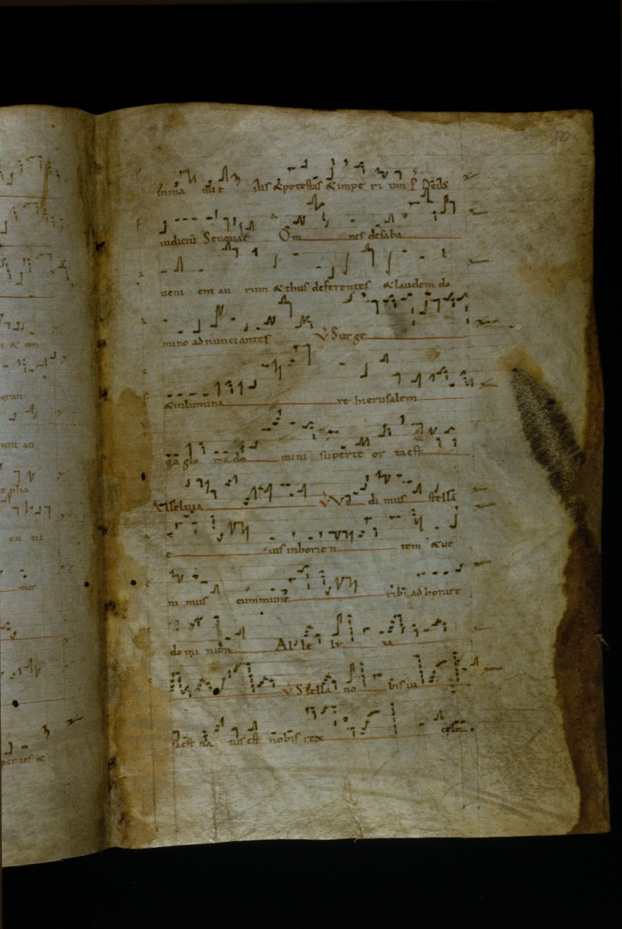 in ma nu e ius & potestas & impe ri um P Deus
iudiciū Seuouae Om nes desaba
ueni ent au rum & thus deferentes & laudem do
mino adnunciantes V Surge
& inlumina re hierusalem
glo ri a do mini super te or ta est
Alleluia V Vi di mus stella
e ius in horien tem & ue
ni mus cum mune ribus adhorare
do mi num Al le lu ia
V Stella no bis ui
sa est na tus est nobis rex